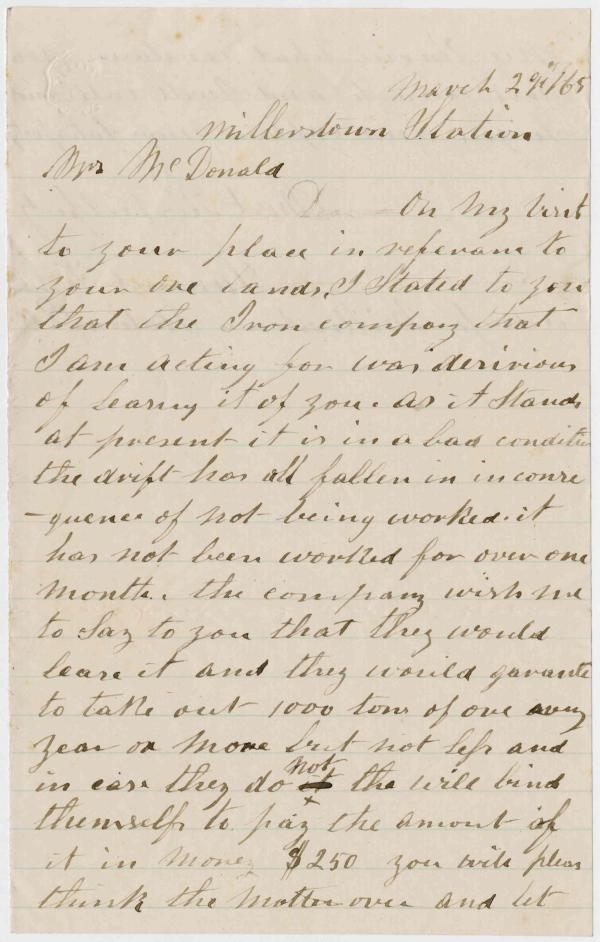 March 29th/65
Millerstown Station
Mrs McDonald
Dear — On my visit
to your place in referanc to
your ore lands, I Stated to you
that the Iron company that
I am acting for was
of Leasing it of you. as it Stands
at present it is in a bad conditin
the drift has all fallen in in conse
-quence of not being worked. it
has not been worked for over one
month. the company wish me
to Say to you that they would
lease it and they would garante
to take out 1000 tons of ore every
year or more but not less and
in case they do not the will bind
themselfs to pay the amount of
it in money $250 you will pleas
think the matter over and let